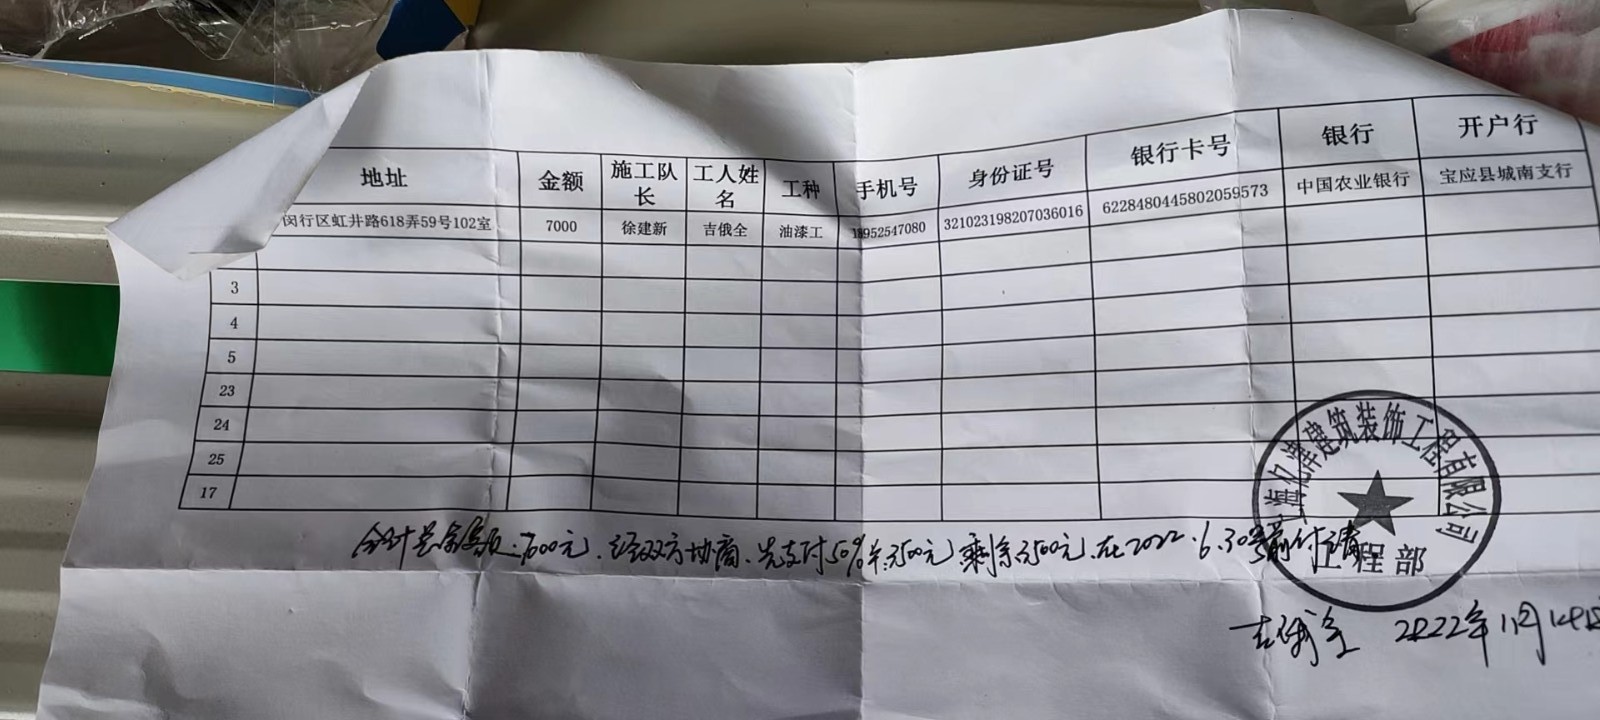 地址 金额 施工队长 工人姓名 工种 手机号 身份证号 银行卡号 银行 开户行
闵行区虹井路618弄59号102室 7000 徐建新 吉俄全 油漆工 18952547080 321023198207036016 6228480445802059573 中国农业银行 宝应县城南支行
3
4
5
23
24
25
17
合计总金额:7000元.经双方协商、先支付50%共3500元剩余3500元.在2022.6.30号前付清
建筑装饰工程有限公司
工程部
吉俄全 2022年1月14日